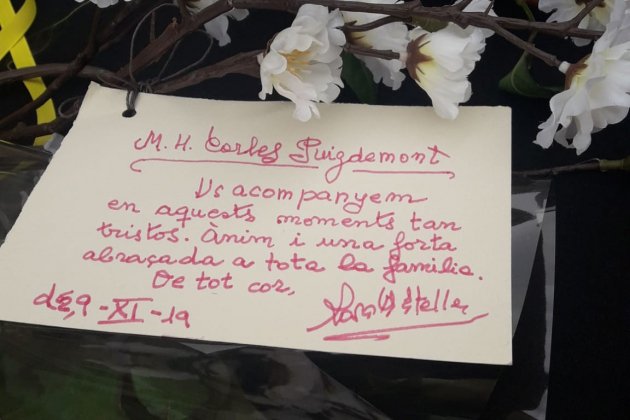 M. H. Carles Puigdemont
Us acompanyem
en aquests moments tan
tristos. Ànim i una forta
abraçada a tota la família.
De tot cor,
9-XI-19